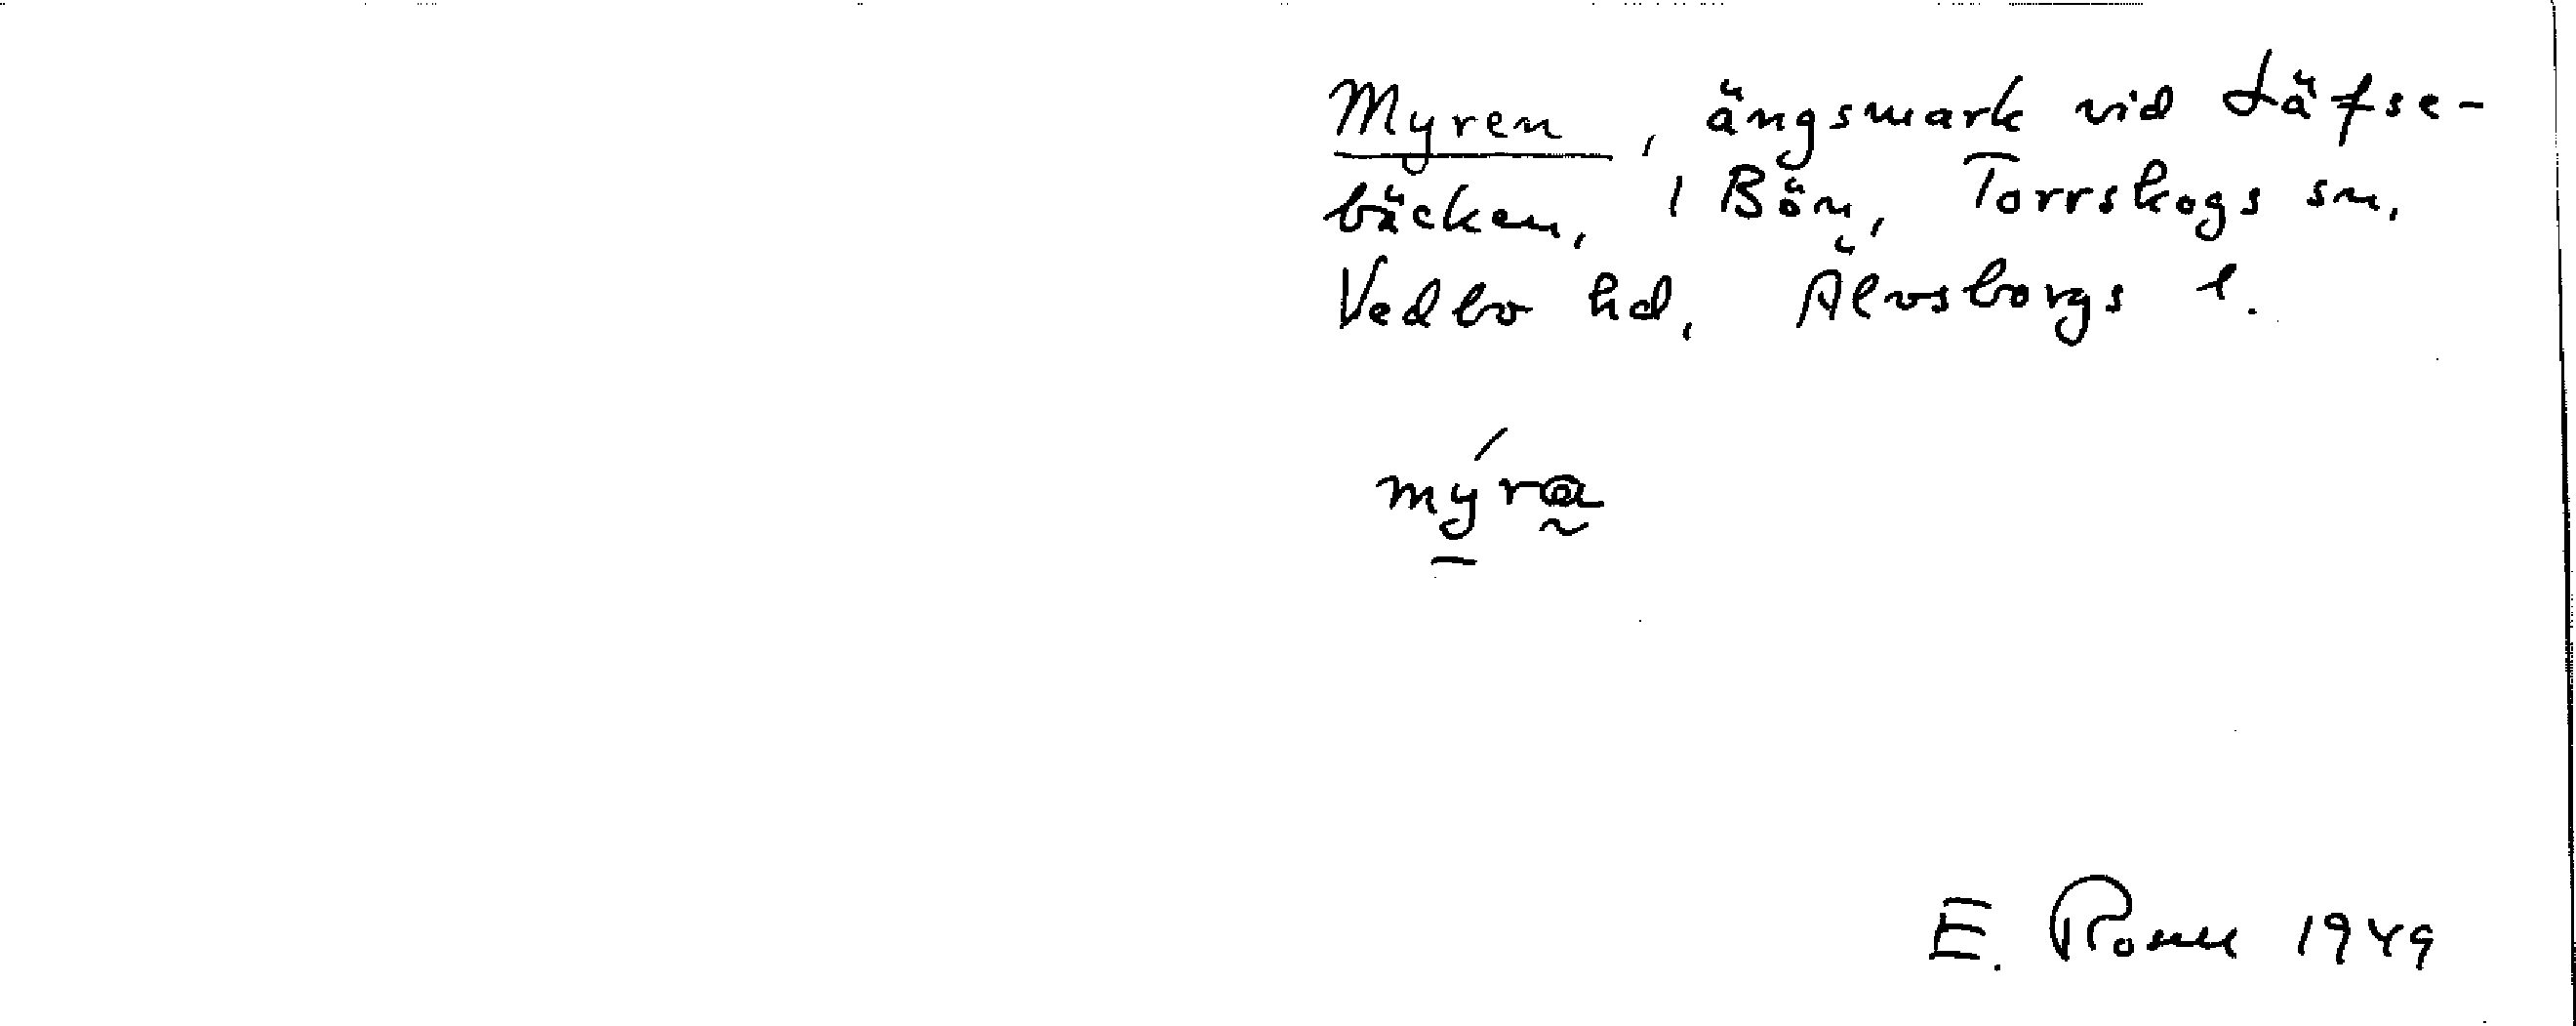 Myren, ängsmark vid Läfse-
bäcken, i Bön, Torrskogs sn,
Vedbo hd, Älvsborgs l.
mýra
E. 1949